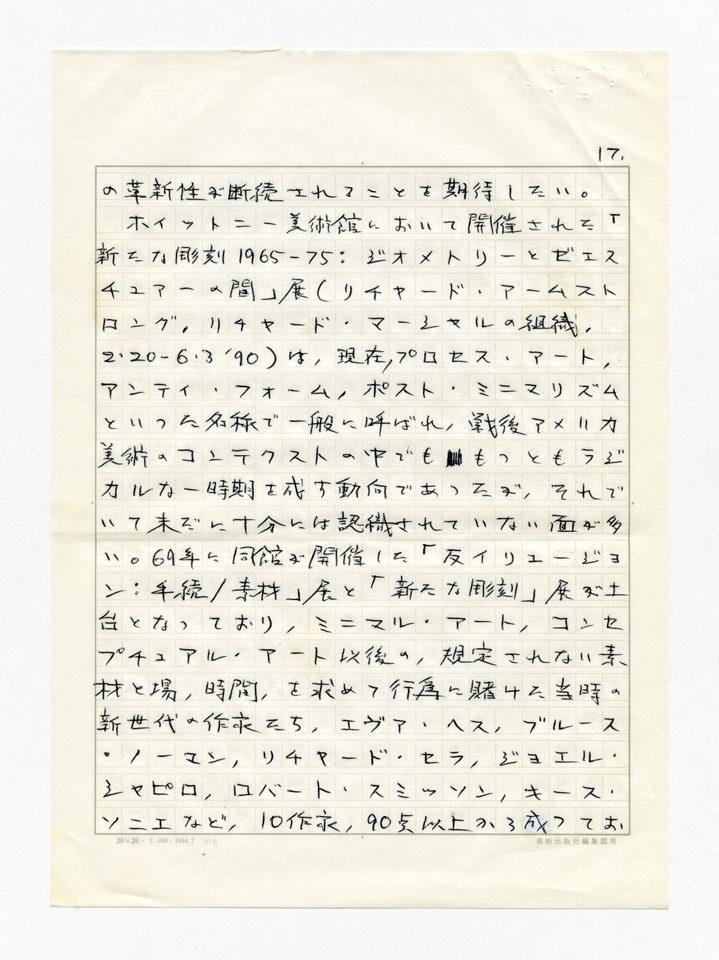 17.
の革新性が断続されることを期待したい。
ホイットニー美術館において開催された「
新たな彫刻1965-75：ジオメトリーとゼェス
チュアーの間」展(リチャード・アームスト
ロング，リチャード・マーシャルの組織，
2・20-6・3 '90)は，現在，プロセス・アート，
アンティ・フォーム，ポスト・ミニマリズム
といった名称で一般に呼ばれ，戦後アメリカ
美術のコンテクストの中でももっともラジ
カルな一時期を成す動向であったが，それで
いて未だに十分には認識されていない面が多
い。69年に同館が開催した「反イリュージョ
ン：手続/素材」展と「新たな彫刻」展が土
台となっており，ミニマル・アート，コンセ
プチュアル・アート以後の，規定されない素
材と場，時間，を求めて行為に賭けた当時の
新世代の作家たち，エヴァ・ヘス，ブルース
・ノーマン，リチャード・セラ，ジョエル・
シャピロ，ロバート・スミッソン，キース・
ソニエなど，10作家，90点以上から成ってお
20×20・5,000・1984.7
美術出版社編集部用